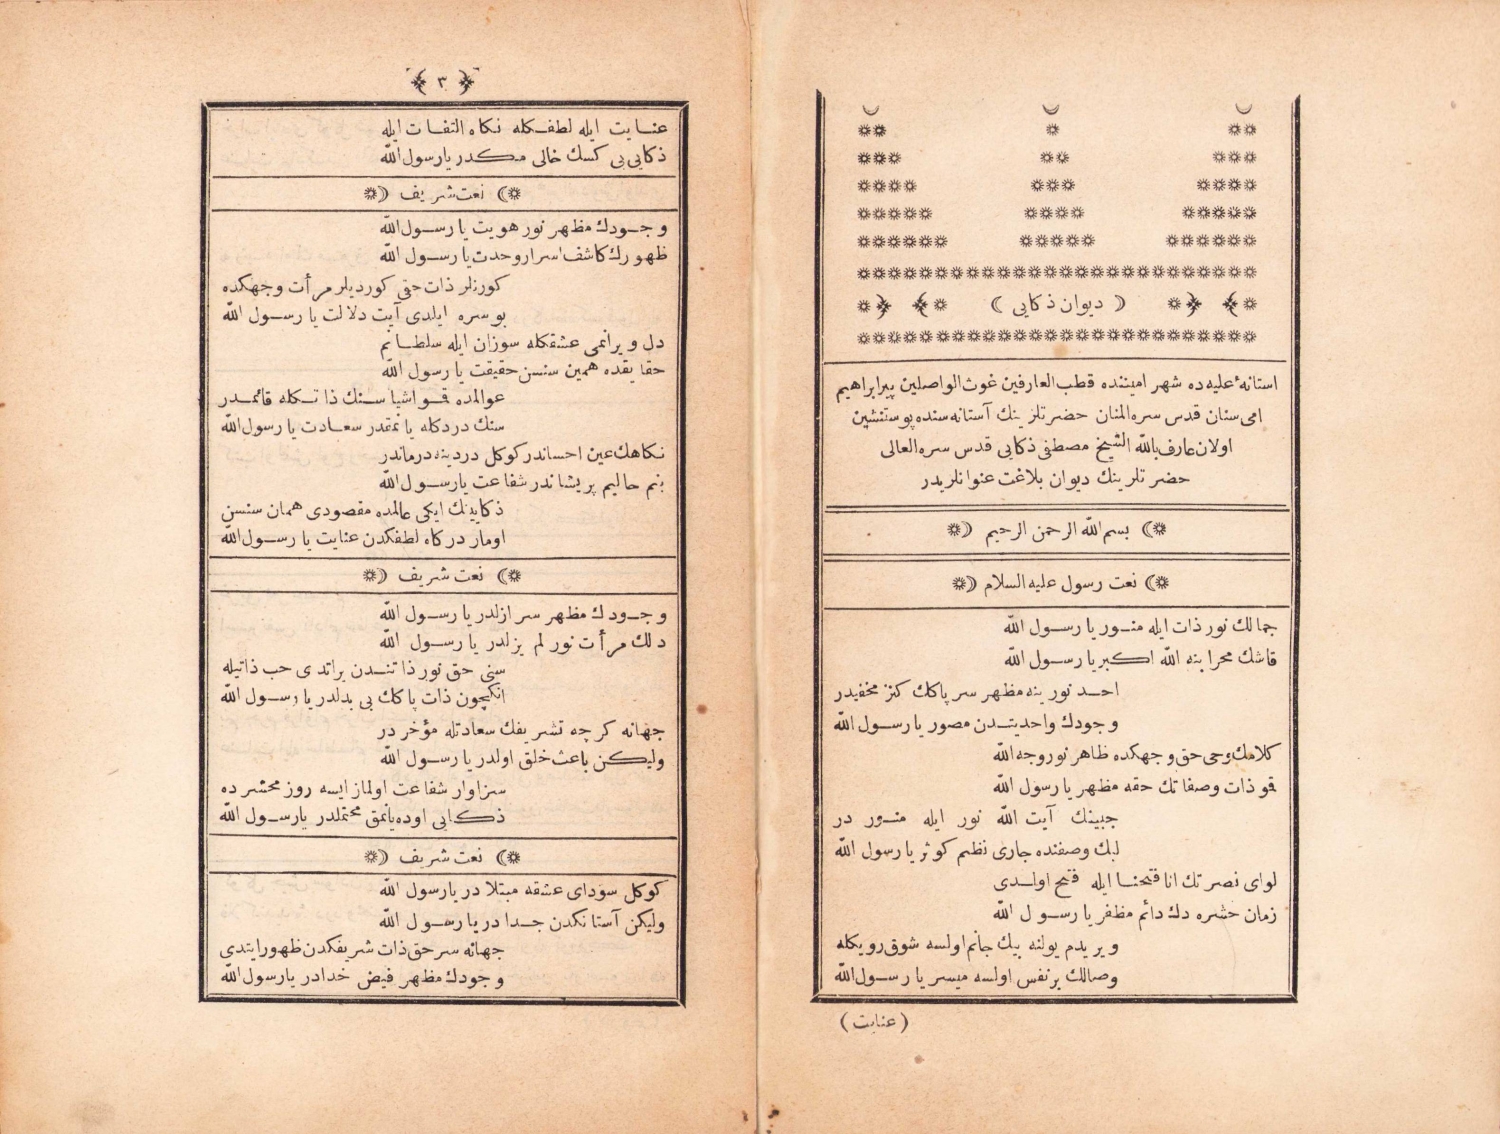 ﴿ ديوان ذكايى ﴾
استانهٔ عليه ده شهر اميننده قطب العارفين غوث الواصلين پيرابراهيم
امى سنان قدس سره المنان حضرتلرينك آستانه سنده پوستنشين
اولان عارف بالله الشيخ مصطفى ذكايى قدس سره العالى
حضرتلرينك ديوان بلاغت عنوانلريدر
بسم الله الرحمن الرحيم
نعت رسول عليه السلام
جمالك نور ذات ايله منور يا رسول الله
قاشك محرابنه الله اكبر يا رسول الله
احد نورينه مظهر سر پاكك كنز مخفيدر
وجودك واحديتدن مصور يا رسول الله
كلامك وحى حق وجهكده ظاهر نور وجه الله
قو ذات وصفاتك حقه مظهر يا رسول الله
جبينك آيت الله نور ايله منور در
لبك وصفنده جارى نظم كوثر يا رسول الله
لواى نصرتك انا فتحنا ايله فتح اولدى
زمان حشره دك دائم مظفر يا رسول الله
ويريدم يولنه بيك جانم اولسه شوق رويكله
وصالك برنفس اولسه ميسر يا رسول الله
(عنايت)
﴿ ٣ ﴾
عنايت ايله لطفكله نكاه التفات ايله
ذكايى بى كسك خالى مكدر يا رسول الله
نعت شريف
وجودك مظهر نور هويت يا رسول الله
ظهورك كاشف اسرار وحدت يا رسول الله
كورنلر ذات حقى كورديلر مرأت وجهكده
بو سره ايلدى آيت دلالت يا رسول الله
دل ويرانمى عشقكله سوزان ايله سلطانم
حقايقده همين سنسن حقيقت يا رسول الله
عوالمده قو اشيا سنك ذاتكله قائمدر
سنك دردكله يانمقدر سعادت يا رسول الله
نكاهك عين احساندر كوكل دردينه درماندر
بنم حاليم پريشاندر شفاعت يا رسول الله
ذكايينك ايكى عالمده مقصودى همان سنسن
اومار دركاه لطفكدن عنايت يا رسول الله
نعت شريف
وجودك مظهر سر ازلدر يا رسول الله
دلك مرأت نور لم يزلدر يا رسول الله
سنى حق نور ذاتندن يراتدى حب ذاتيله
انكيچون ذات پاكك بى بدلدر يا رسول الله
جهانه كرچه تشريفك سعادتله مؤخر در
وليكن باعث خلق اولدر يا رسول الله
سزاوار شفاعت اولماز ايسه روز محشرده
ذكايى اوده يانمق محتملدر يا رسول الله
نعت شريف
كوكل سوداى عشقه مبتلا در يا رسول الله
وليكن آستانكدن جدا در يا رسول الله
جهانه سر حق ذات شريفكدن ظهور ايتدى
وجودك مظهر فيض خدادر يا رسول الله